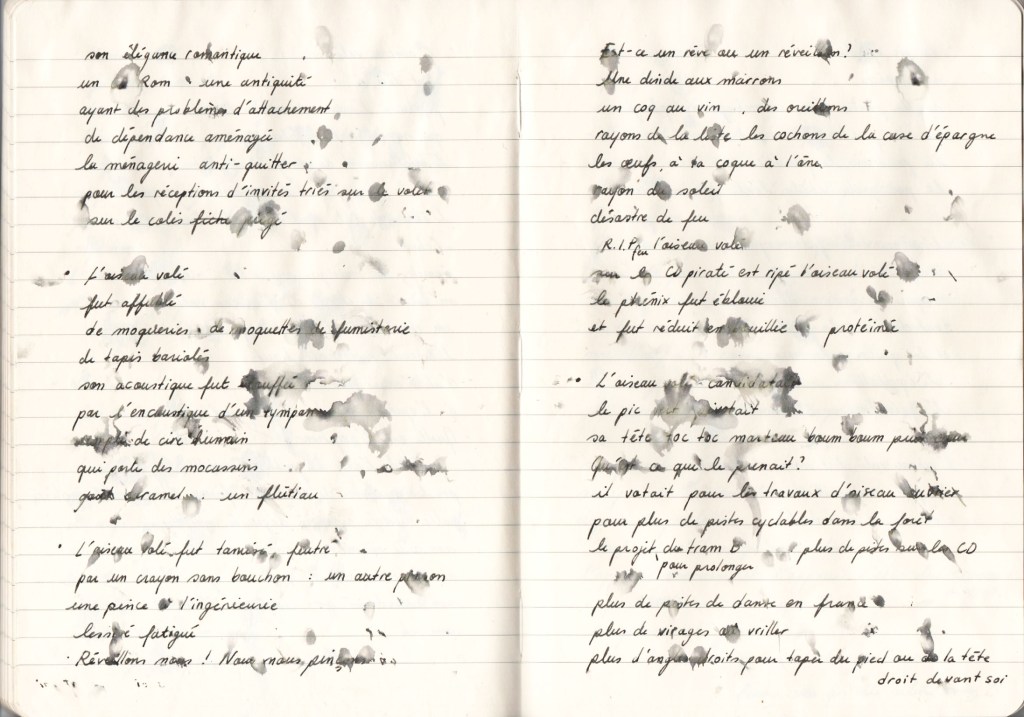 son élégance romantique
un Rom une antiquité
ayant des problèmes d'attachement
de dépendance aménagée
la ménagerie anti-quitter
pour les réceptions d'invités triés sur le volet
sur le colis fiche piégé
L'oiseau volé
fut affublé
de moqueries de moquettes de fumisterie
de tapis bariolés
son acoustique fut étouffée
par l'encaustique d'un tympan
rempli de cire humain
qui porte des mocassins
goût caramel un flûtiau
L'oiseau volé fut tamisé, feutré
par un crayon sans bouchon : un autre poison
une pince à l'ingénieurie
lessivé fatigué
Réveillons nous ! Nous nous
Est-ce un rêve ou un réveillon ?
Une dinde aux marrons
un coq au vin, des oreillons
rayons de la liste les cochons de la case d'épargne
les œufs, à la coque à l'âne
rayon du soleil
désastre de feu
R.I.P. feu l'oiseau volé
sur le CD piraté est ripé l'oiseau volé
le phénix fut éblouie
et fut réduit en bouillie protéinée
L'oiseau volé candidatait
le pic vert pivotait
sa tête toc toc marteau boum boum puis
Qu'est ce qui le prenait ?
il votait pour les travaux d'oiseau ouvrier
pour plus de pistes cyclables dans la forêt
le projet du tram D plus de pistes sur le CD
pour prolonger
plus de pistes de danse en france
plus de virages où vriller
plus d'angles droits pour taper du pied ou de la tête
droit devant soi